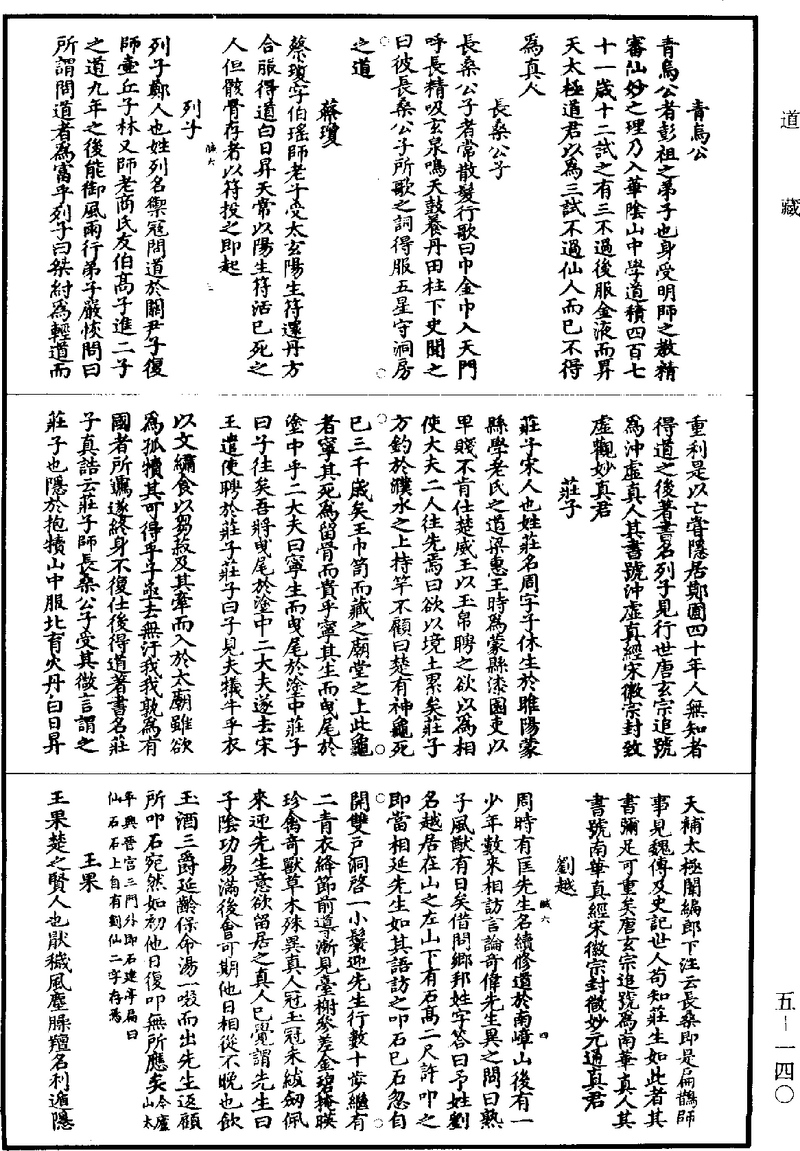 道藏
五—一四〇
青烏公
青烏公者彭祖之弟子也身受明師之教精
審仙妙之理乃入華陰山中學道積四百七
十一歲十二試之有三不過後服金液而昇
天太極道君以爲三試不過仙人而已不得
爲真人
長桑公子
長桑公子者常散髮行歌曰巾金巾入天門
呼長精吸玄泉鳴天鼓養丹田柱下史聞之
曰彼長桑公子所歌之詞得服五星守洞房
之道
蔡瓊
蔡瓊字伯瑤師老子受太玄陽生符還丹方
合服得道白日昇天常以陽生符活已死之
人但骸骨存者以符投之即起
列子
醎六
三
列子鄭人也姓列名禦寇問道於關尹子復
師壺丘子林又師老商氏友伯高子進二子
之道九年之後能御風而行弟子嚴恢問曰
所謂問道者爲富乎列子曰桀紂爲輕道而
重利是以亡嘗隱居鄭圃四十年人無知者
得道之後著書名列子見行世唐玄宗追號
爲沖虛真人其書號沖虛真經宋徽宗封致
虛觀妙真君
莊子
莊子宋人也姓莊名周字子休生於睢陽蒙
縣學老氏之道梁惠王時爲蒙縣漆園吏以
卑賤不肯仕楚威王以玉帛聘之欲以爲相
使大夫二人往先焉曰欲以境土累矣莊子
方釣於濮水之上持竿不顧曰楚有神龜死
已三千歲矣王巾笥而藏之廟堂之上此龜
者寧其死爲留骨而貴乎寧其生而曳尾於
塗中乎二大夫曰寧生而曳尾於塗中莊子
曰子往矣吾將曳尾於塗中二大夫遂去宋
王遣使聘於莊子莊子曰子見夫犧牛乎衣
以文繡食以芻菽及其牽而入於太廟雖欲
爲孤犢其可得乎子亟去無汙我我孰爲有
國者所羈遂終身不復仕後得道著書名莊
子真誥云莊子師長桑公子受其微言謂之
莊子也隱於抱犢山中服北育火丹白日昇
天補太極闈編郎下注云長桑即是扁鵲師
事見魏傳及史記世人苟知莊生如此者其
書彌足可重矣唐玄宗追號爲南華真人其
書號南華真經宋徽宗封微妙元通真君
劉越
醎六
四
周時有匡先生名續修道於南嶂山後有一
少年數來相訪言論奇偉先生異之問曰熟
子風猷有日矣借問鄉邦姓字答曰予姓劉
名越居在山之左山下有石高二尺許叩之
即當相延先生如其語訪之叩石已石忽自
開雙戶洞啓一小鬟迎先生行數十步繼有
二青衣絳節前導漸見臺榭參差金碧掩映
珍禽奇獸草木殊異真人冠玉冠朱紱劒佩
來迎先生意欲留居之真人已覺謂先生曰
子陰功易滿後會可期他日相從不晚也飲
玉酒三爵延齡保命湯一啜而出先生返顧
所叩石宛然如初他日復叩無所應矣今廬山太
平興宫三門外即石建亭扁曰
仙石石上自有劉仙二字存焉
王果
王果楚之賢人也厭穢風塵臊羶名利遁隱